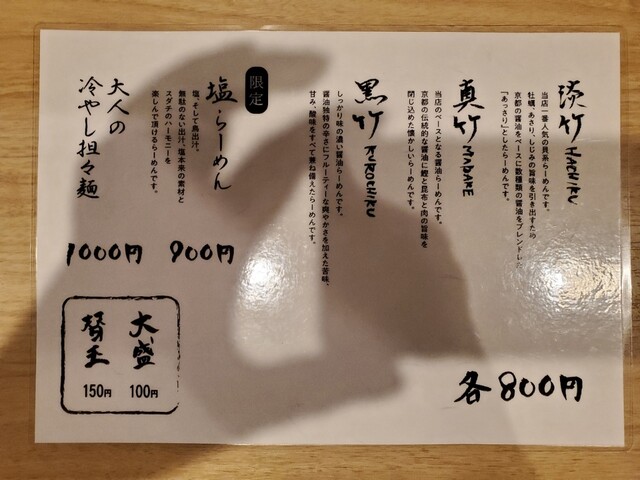 淡竹 HACHIKU
当店一番人気の貝系らーめんです。
牡蠣、あさり、しじみの旨味を引き出すため
京都の醤油をベースに数種類の醤油をブレンドした
「あっさり」としたらーめんです。
真竹 MADAKE
当店のベースとなる醤油らーめんです。
京都の伝統的な醤油に鰹と昆布と肉の旨味を
閉じ込めた懐かしいらーめんです。
黒竹 KUROCHIKU
しっかり味の濃い醤油らーめんです。
醤油独特の辛さにフルーティーな爽やかさを加えた苦味、
甘み、酸味をすべて兼ね備えたらーめんです。
各800円
限定
塩らーめん
塩、そして鳥出汁、
無駄のない出汁、塩本来の素材と
スダチのハーモニーを
楽しんで頂けるらーめんです。
900円
大人の
冷やし担々麺
1000円
大盛
100円
替玉
150円